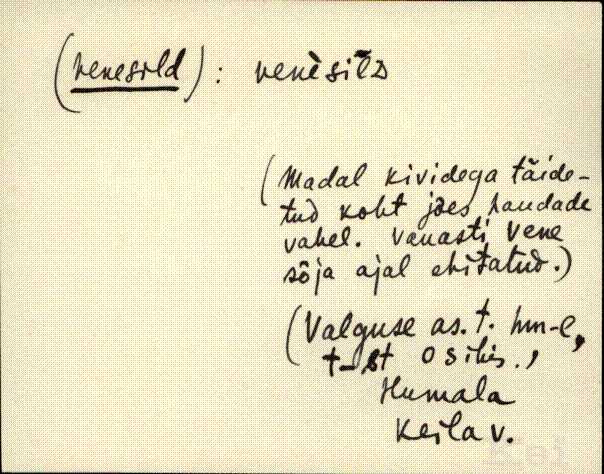 (venesild): venèsilᴅ
(Madal kividega täide-
tud koht jões haudade
vahel. Vanasti Vene
sõja ajal ehitatud.)
(Valguse as. t. hm-e,
t-st O sihis.,
Humala
Keila v.